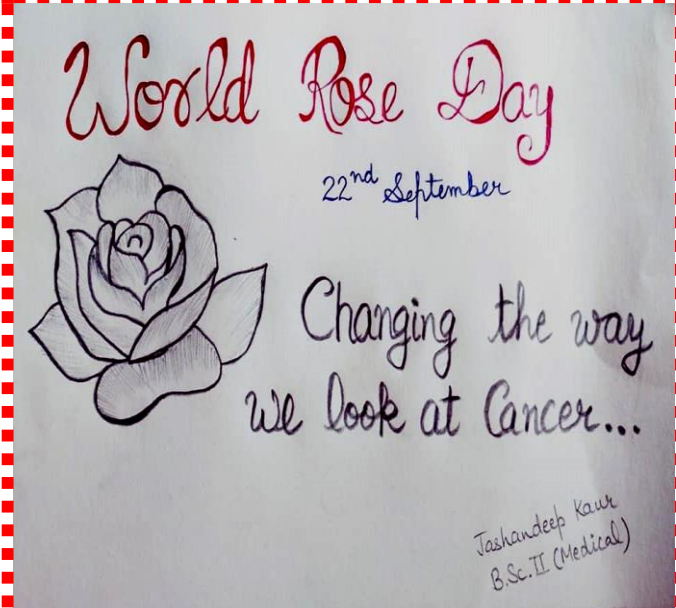 World Rose Day
22nd September
Changing the way
we look at Cancer...
Jashandeep Kaur
B.Sc. II (Medical)